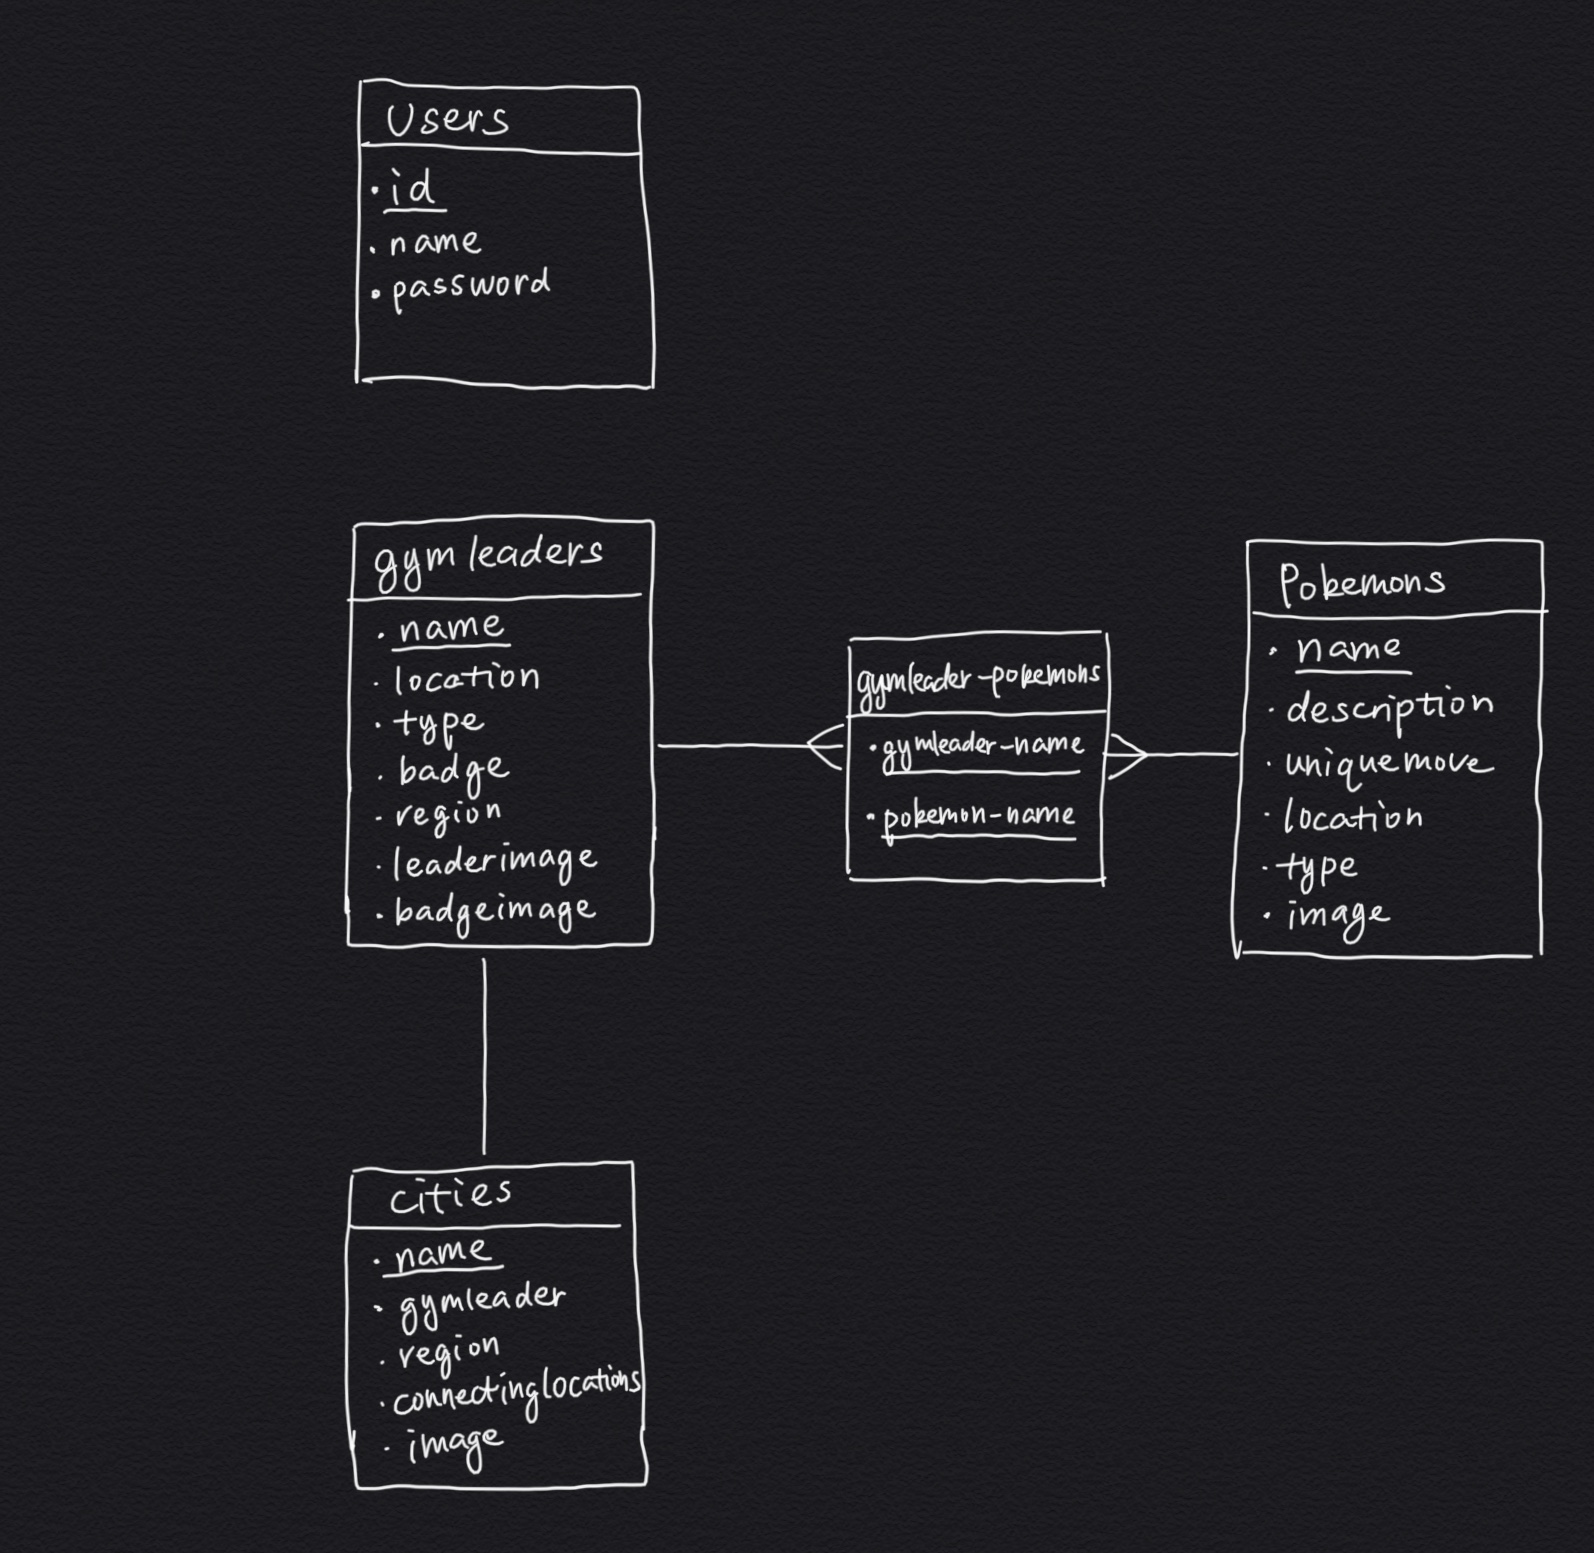 Users
· id
· name
· password
gym leaders
· name
· location
· type
· badge
· region
· leaderimage
· badgeimage
gymleader-pokemons
· gymleader-name
· pokemon-name
Pokemons
· name
· description
· uniquemove
· location
· type
· image
cities
· name
· gymleader
· region
· connectinglocations
· image